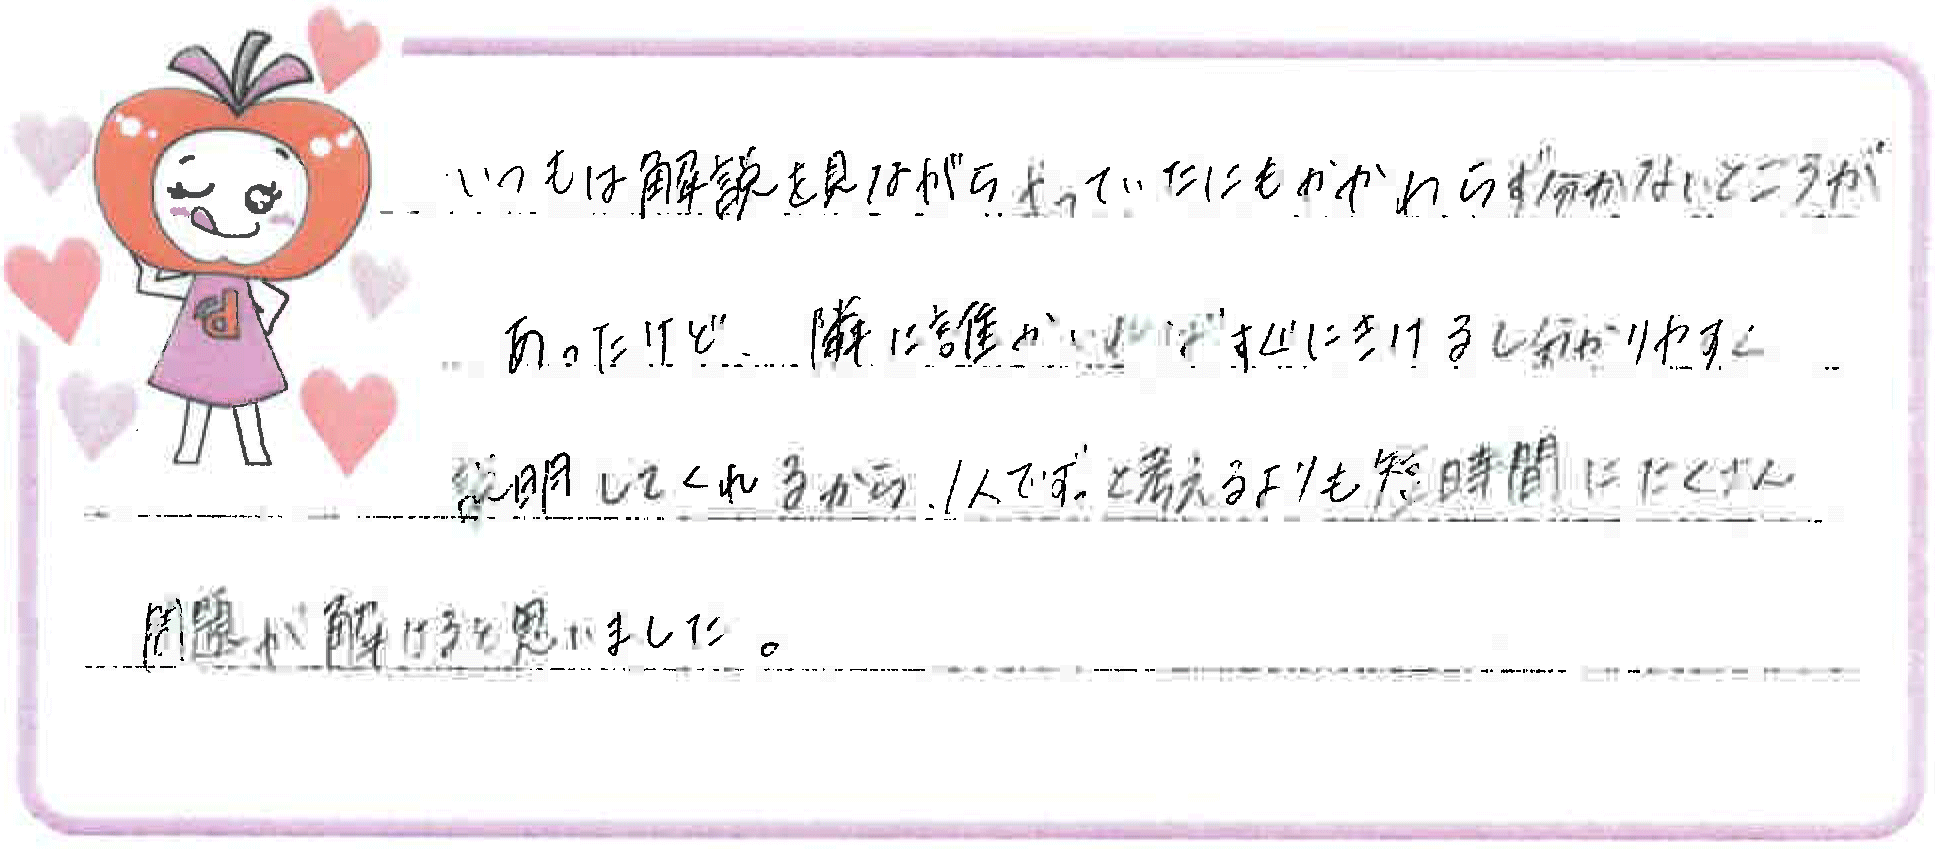 いつもは解説を見ながらやっていたにもかかわらず分かないところが
あったけど、隣に誰かいればすぐにきけるし分かりやすく
説明してくれるから、1人でずっと考えるよりも短時間にたくさん
問題が解けると思いました。